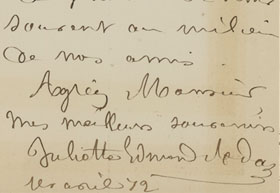 souvent au milieu
de nos amis.
Agréez Monsieur,
mes meilleurs souvenirs
Juliette Edmond
1er avril 72